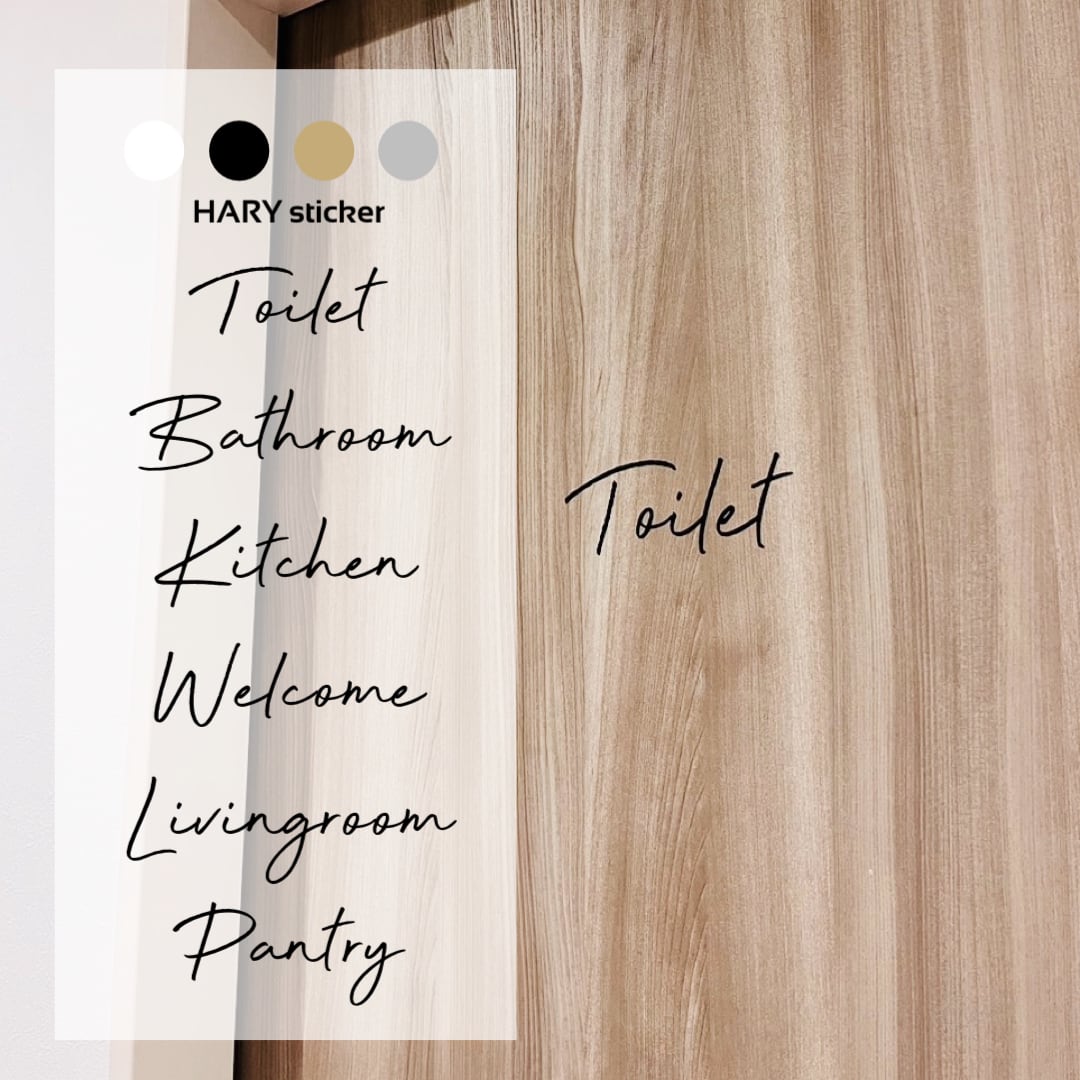 HARY sticker
Toilet
Bathroom
Kitchen
Welcome
Livingroom
Pantry
Toilet